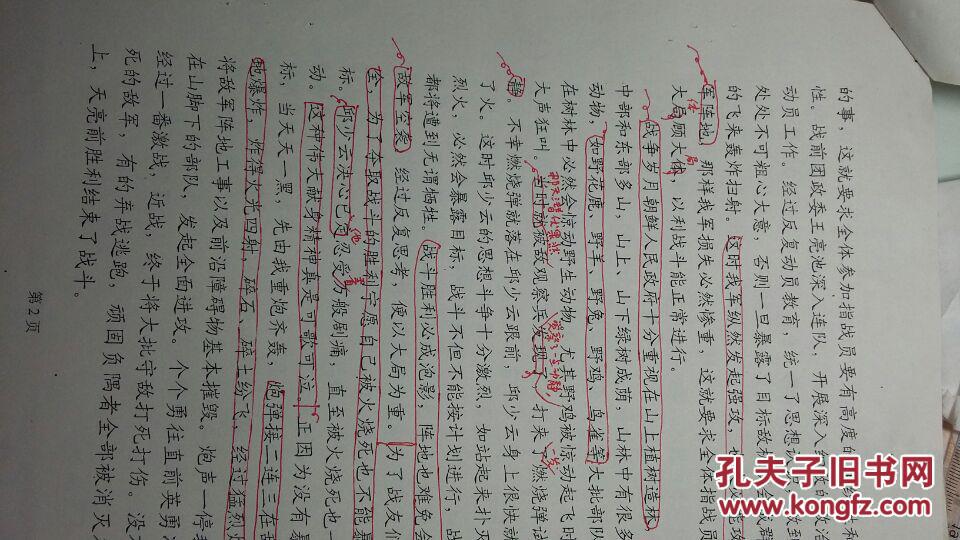 的事，这就要求全体参加指战员要有高度的
性。战前团政委王亮池深入连队，开展深入
动员工作。经过反复动员教育，统一了思想认
处处不可粗心大意，否则一旦暴露了目标敌机 会成群
的飞来轰炸扫射。这时我军纵然发起强攻，
军阵地，那样我军损失必然惨重，这就要求全体指战员
大局顾大体，以利战斗能正常进行。
体 局
战争岁月朝鲜人民政府十分重视在山上植树造林
中部和东部多山，山上、山下绿树成荫，山林中有很多
动物，如野花鹿、野羊、野兔、野鸡、鸟雀等大批部队
在树林中必然会惊动野生动物，尤其野鸡被惊动起飞时
大声狂叫。当时就被敌观察兵发现了，打来了燃烧弹试
静。不幸燃烧弹就落在邱少云跟前，邱少云身上很快就
了火。这时邱少云的思想斗争十分激烈，如站起来扑灭
烈火，必然会暴露目标，战斗不但不能按计划进行，战
都将遭到无谓牺牲。战斗胜利必成泡影，阵地也难免会
敌军空袭 经过反复思考，便以大局为重。为了战友们
全，为了夺取战斗的胜利宁愿自己被火烧死也不能暴
标。邱少云决心已定忍受万般剧痛，直至被火烧死也一
动。这种伟大献身精神真是可歌可泣。正因为没有暴
标，当天天一黑，先由我重炮齐轰，炮弹接二连三在敌
地爆炸，炸得火光四射，碎石、碎土纷飞，经过猛烈
将敌军阵地工事以及前沿障碍物基本摧毁。炮声一停
在山脚下的部队，发起全面进攻。个个勇往直前英勇
经过一番激战，近战，终于将大批守敌打死打伤。没
死的敌军，有的弃战逃跑，顽固负隅者全部被消灭
上，天亮前胜利结束了战斗。
第2页
孔夫子旧书网
KONGFZ.COM